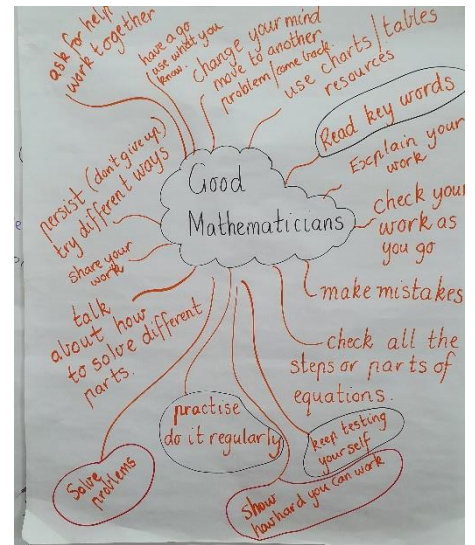 Good
Mathematicians
ask for help
work together
have a go
use what you
know.
change your mind
move to another
problem/come back.
use charts/tables
resources
Read key words
Explain your
work
check your
work as
you go
make mistakes
check all the
steps or parts of
equations.
keep testing
yourself
show
how hard you can work
practise
do it regularly
Solve
problems
talk
about how
to solve different
parts.
share your
work
persist (don't give up)
try different ways